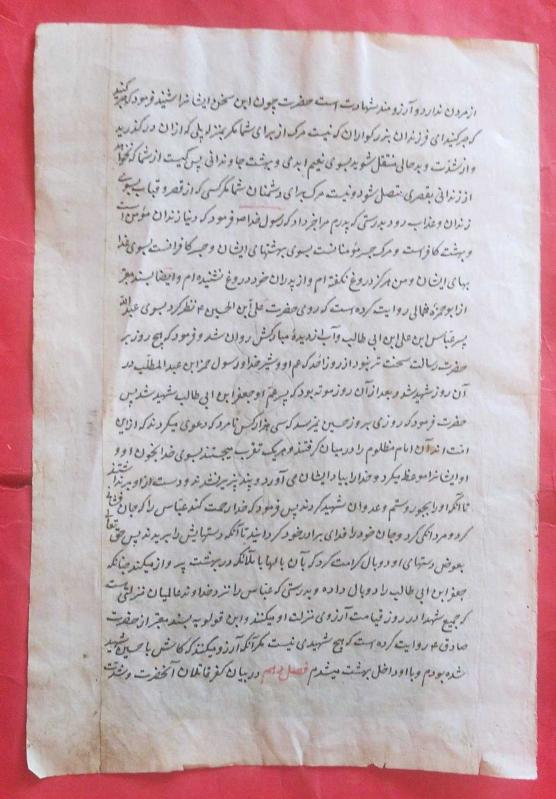 از مردن ندارد و آرزومند شهادت است حضرت چون این سخن ایشانرا شنید فرمود که صبر کنید
که صبر کنید ای فرزندان بزرگواران که نیست مرگ از برای شما مگر بمنزله پلی که از آن درگذرید
و از شدت و بدحالی منتقل شوید بسوی نعیم ابدی و بهشت جاودانی پس کیست از شما که نخواهد
از زندانی بقصری متصل شود و نیست مرگ برای دشمنان شما مگر کسی که از قصر و قباب بسوی
زندان و عذاب رود بدرستی که پدرم مرا خبر داد که رسول خدا ص فرمود که دنیا زندان مؤمن است
و بهشت کافر است و مرگ جسر مؤمنانست بسوی بهشتهای ایشان و جسر کافرانست بسوی
بهای ایشان و من هرگز دروغ نگفته ام و از پدران خود دروغ نشنیده ام و ایضا بسند معتبر
از ابو حمزه ثمالی روایت کرده است که روزی حضرت علی بن الحسین ۴ نظر کرد بسوی عبدالله
پسر عباس بن علی ابن ابی طالب و آب از دیدهٔ مبارکش روان شد و فرمود که هیچ روز بر
حضرت رسالت سخت تر نبود از روز احد که عم او و شیر خدا و رسول حمزه ابن عبدالمطلب در
آن روز شهید شد و بعد از آن روز موته بود که پسر عم او جعفر ابن ابی طالب شهید شد پس
حضرت فرمود که روزی بروز حسین نمیرسد که سی هزار کس نامرد که دعوی میکردند که از این
امت اند آن امام مظلوم را در میان گرفتند و هر یک تقرب میجستند بسوی خدا بخون او و
او ایشانرا موعظه میکرد و خدا را بیاد ایشان می آورد و پند پذیر نشدند و دست از او برنداشتند
تا آنکه او را بجور و ستم و عدوان شهید کردند پس فرمود که خدا رحمت کند عباس را که جان فشانی
کرد و مردانگی کرد و جان خود را فدای برادر خود گردانید تا آنکه دستهایش را بریدند پس حق تعالی
بعوض دستهای او دو بال کرامت کرد که بآن بالها با ملائکه در بهشت پرواز میکند چنانکه
جعفر ابن ابی طالب را دو بال داده و بدرستی که عباس را نزد خداوند عالمیان منزلتی است
که جمیع شهدا در روز قیامت آرزوی منزلت او میکنند و ابن قولویه بسند معتبر از حضرت
صادق ۴ روایت کرده است که هیچ شهیدی نیست مگر آنکه آرزو میکند که کاش با حسین شهید
شده بودم و با او داخل بهشت میشدم فصل دهم در بیان کفر قاتلان آنحضرت و شدت